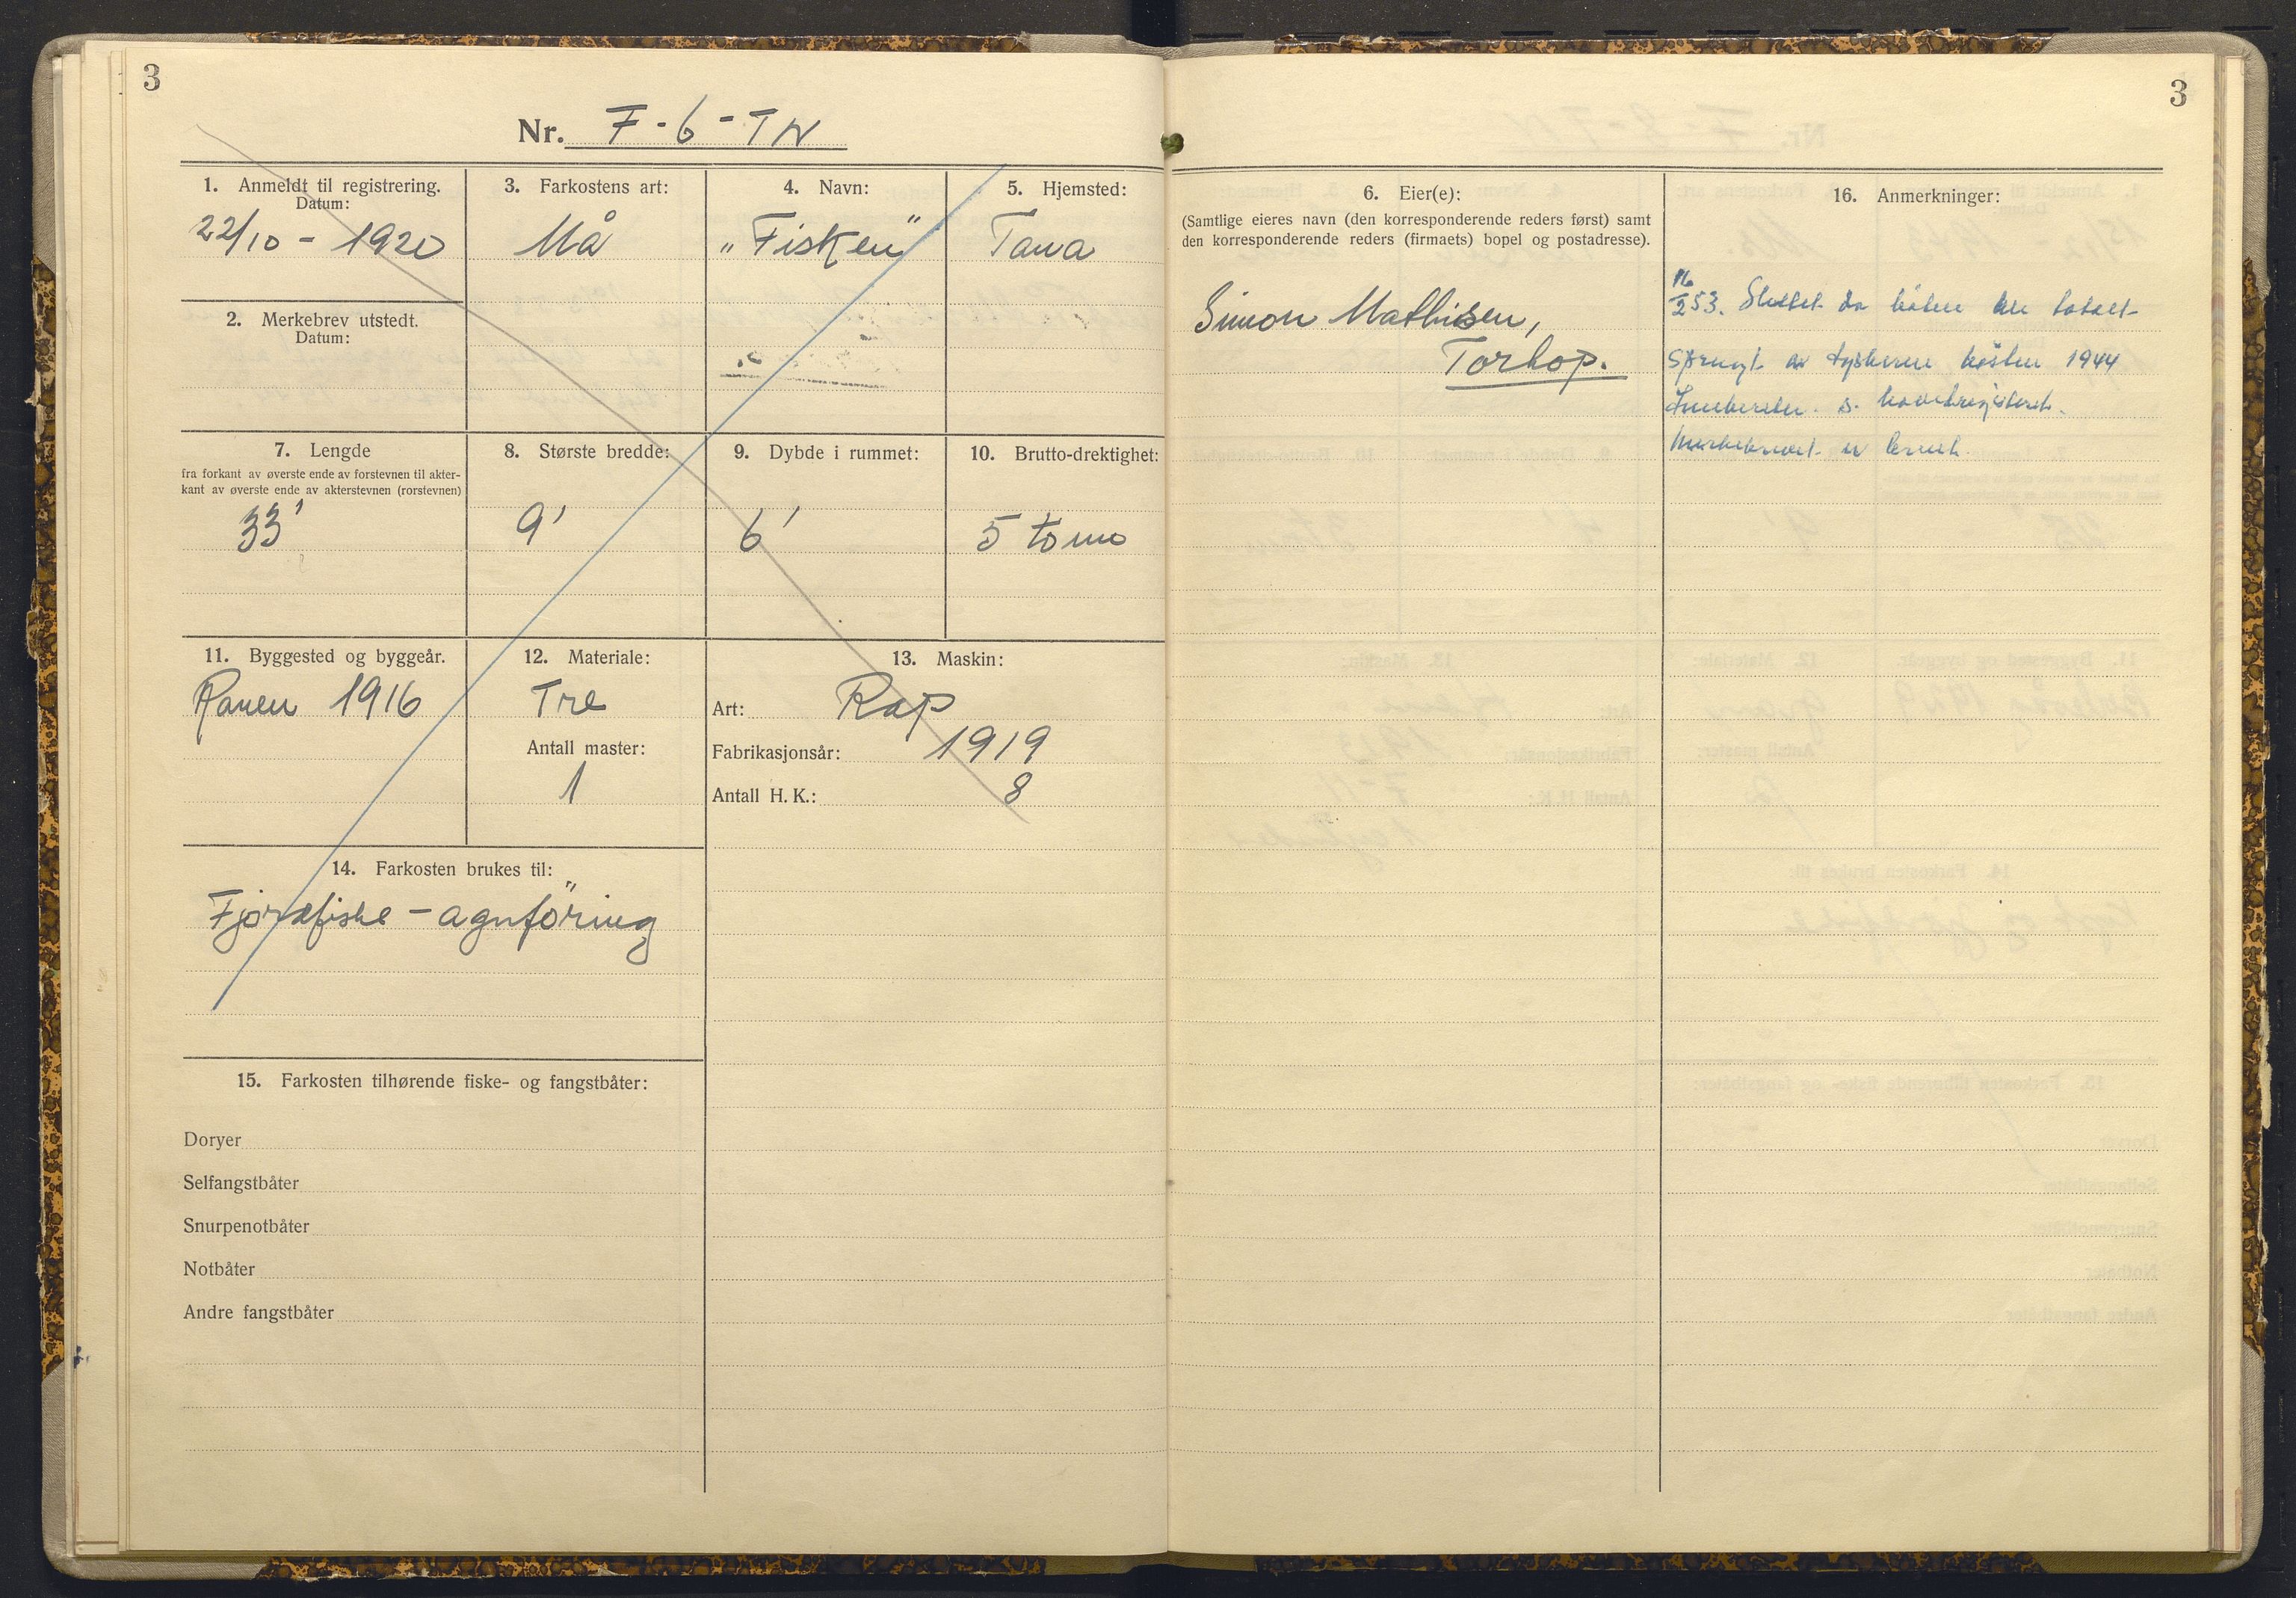 3
Nr. F-6-TN
1. Anmeldt til registrering.
Datum:
22/10 - 1920
2. Merkebrev utstedt.
Datum:
3. Farkostens art:
Må
4. Navn:
„Fisken"
5. Hjemsted:
Tana
7. Lengde
fra forkant av øverste ende av forstevnen til akter-
kant av øverste ende av akterstevnen (rorstevnen)
33'
8. Største bredde:
9'
9. Dybde i rummet:
6'
10. Brutto-drektighet:
5 tonn
11. Byggested og byggeår.
Ranen 1916
12. Materiale:
Tre
Antall master:
1
13. Maskin:
Art: Rap
Fabrikasjonsår: 1919
Antall H. K.: 8
14. Farkosten brukes til:
Fjordfiske - agnföring
15. Farkosten tilhørende fiske- og fangstbåter:
Doryer
Selfangstbåter
Snurpenotbåter
Notbåter
Andre fangstbåter
3
6. Eier(e):
(Samtlige eieres navn (den korresponderende reders først) samt
den korresponderende reders (firmaets) bopel og postadresse).
Simon Mathisen,
Torhop.
16. Anmerkninger:
16/2 53. Slettet da båten ble totalt
sprengt av tyskerne hösten 1944
s. hovedregisteret.
Merkebrevet er brent.